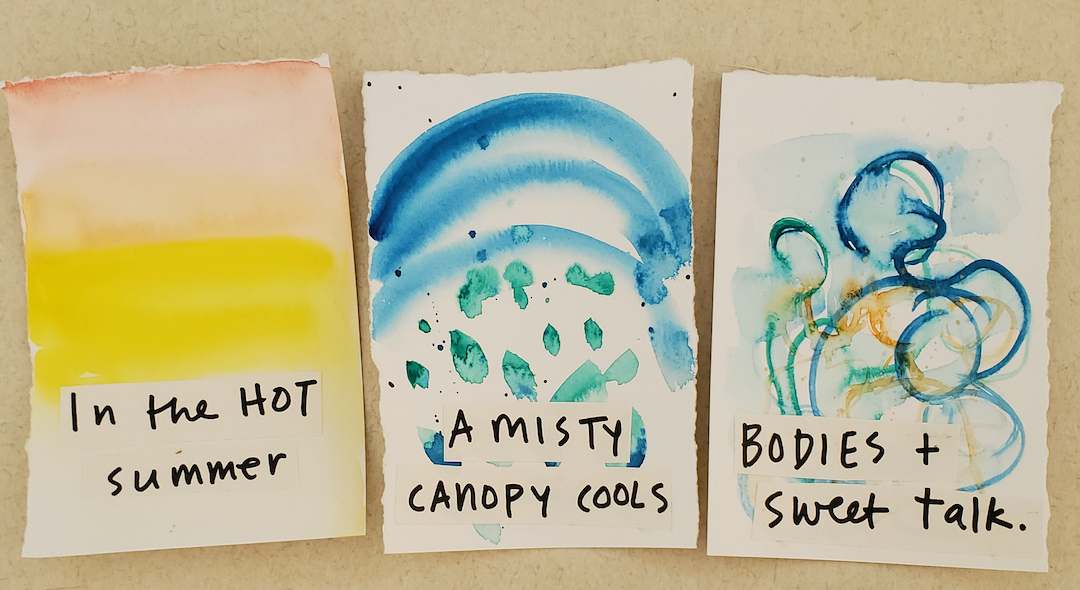 In the HOT
summer
A MISTY
CANOPY COOLS
BODIES +
sweet talk.